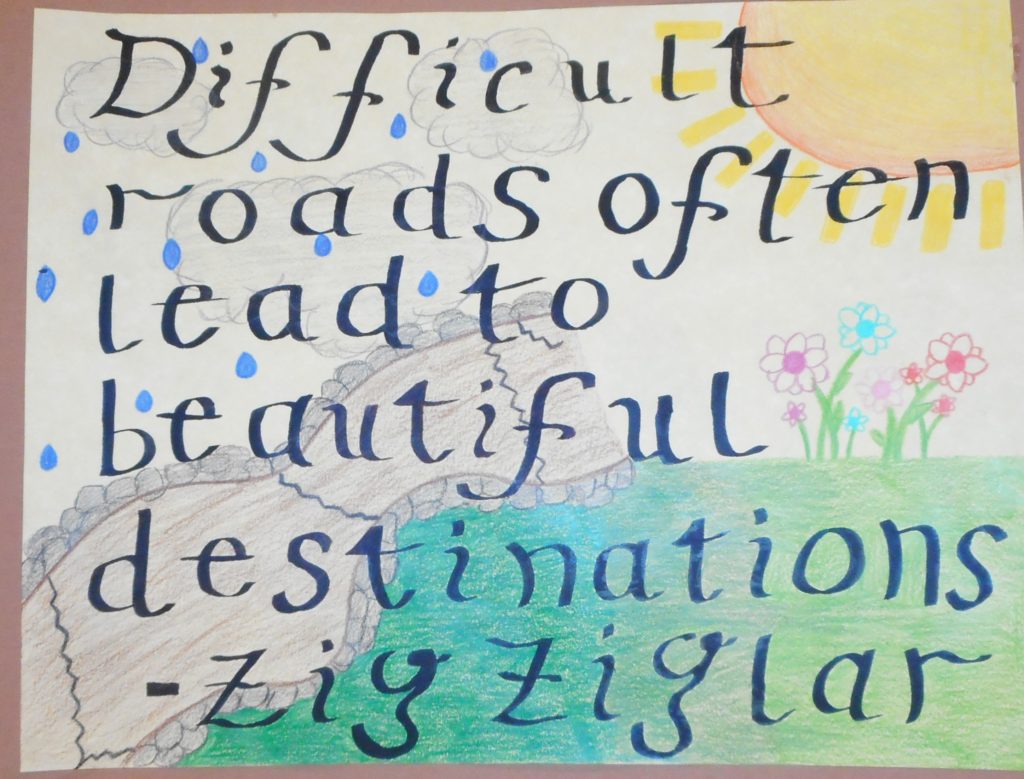 Difficult
roads often
lead to
beautiful
destinations
-Zig Ziglar